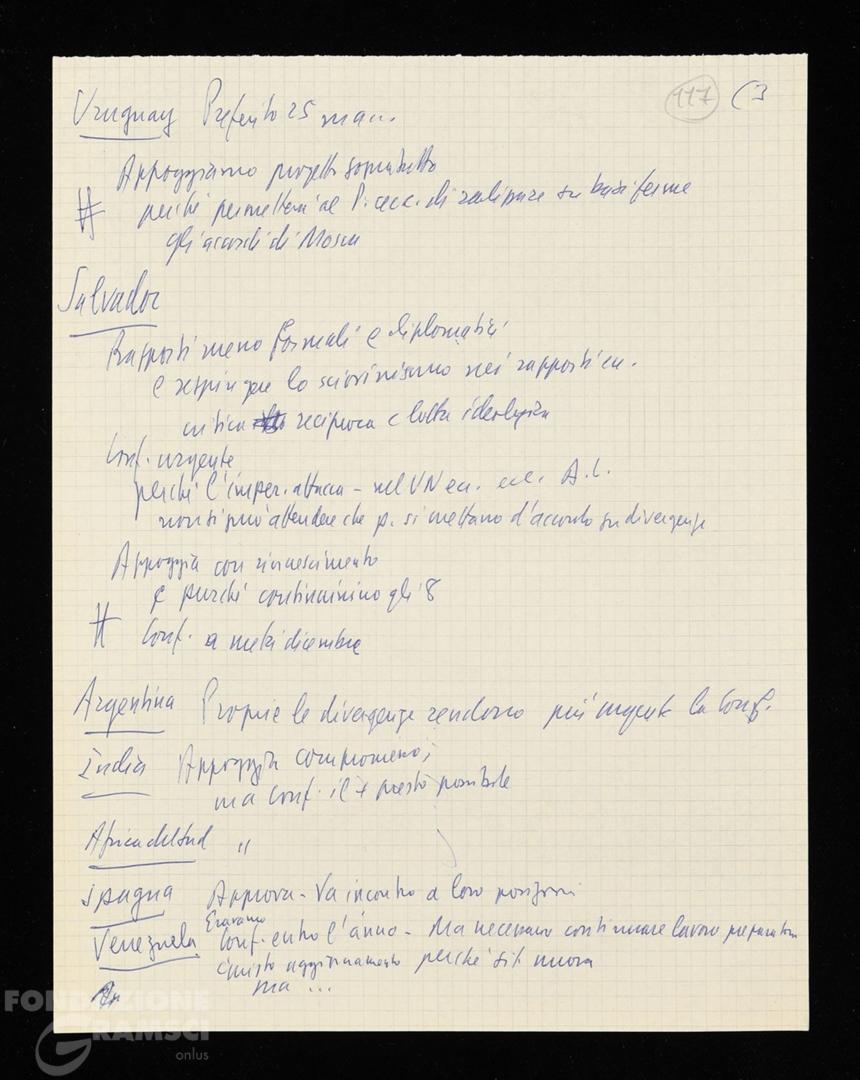 117 (3
Uruguay Preferito 25 ma...
Appoggiamo progetto soprattutto
# perché permetterà al P. cecc. di realizzare su basi ferme
gli accordi di Mosca
Salvador
Rapporti meno formali e diplomatici
e respingere lo sciovinismo nei rapporti
critica reciproca e lotta ideologica
Conf. urgente
perché l'imper. attacca - nel VN ecc. A.L.
non si può attendere che p. si mettano d'accordo su divergenze
Appoggia con rincrescimento
e purché continuino gli 8
# Conf. a metà dicembre
Argentina Proprie le divergenze rendono più urgente la Conf.
India Appoggia compromesso,
ma conf. il + presto possibile
Africa del Sud "
Spagna Approva - Va incontro a loro posizioni
Eravamo
Venezuela Conf. entro l'anno - Ma necessario continuare lavoro preparatorio
giusto aggiornamento perché sit. nuova
ma ...
FONDAZIONE
GRAMSCI
onlus